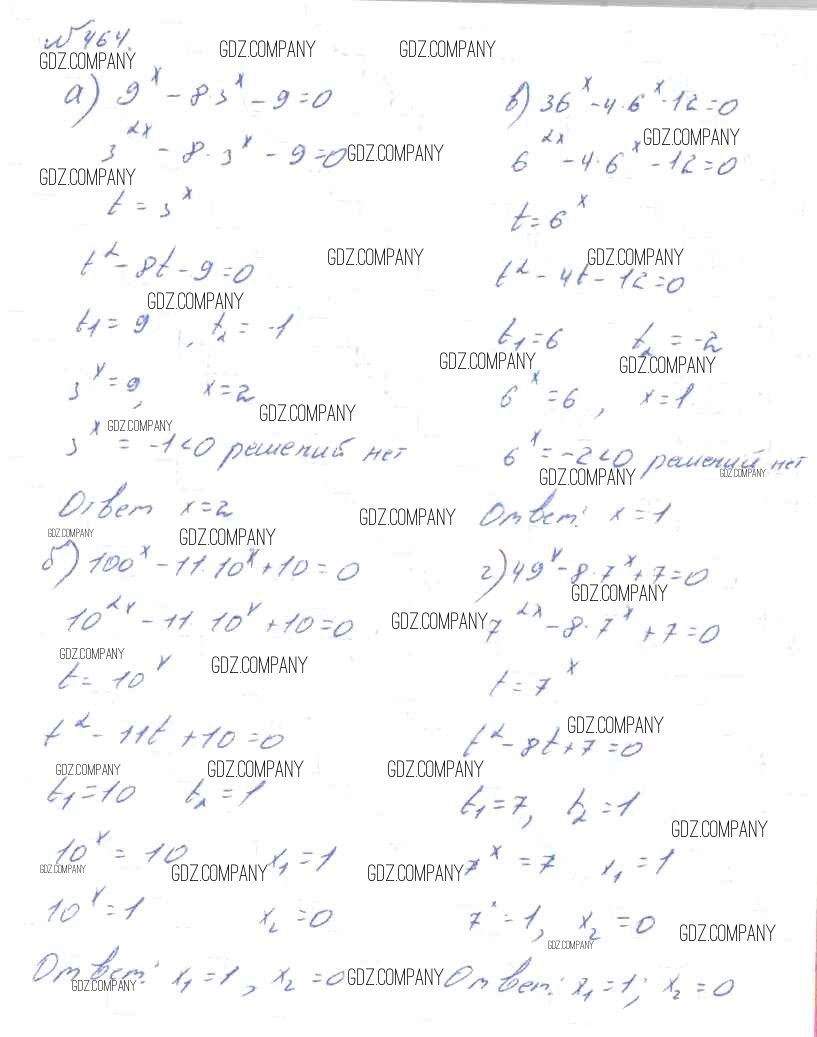 №464.
GDZ.COMPANY GDZ.COMPANY GDZ.COMPANY
а) 9^x - 8·3^x - 9 = 0
3^2x - 8·3^x - 9 = 0 GDZ.COMPANY
GDZ.COMPANY
t = 3^x
t² - 8t - 9 = 0 GDZ.COMPANY
GDZ.COMPANY
t₁ = 9, t₂ = -1
3^x = 9, x = 2
GDZ.COMPANY GDZ.COMPANY
3^x = -1 < 0 решений нет
Ответ x = 2 GDZ.COMPANY
GDZ.COMPANY GDZ.COMPANY
б) 100^x - 11·10^x + 10 = 0
10^2x - 11·10^x + 10 = 0 GDZ.COMPANY
GDZ.COMPANY GDZ.COMPANY
t = 10^x
t² - 11t + 10 = 0
GDZ.COMPANY GDZ.COMPANY GDZ.COMPANY
t₁ = 10 t₂ = 1
10^x = 10 x₁ = 1
GDZ.COMPANY GDZ.COMPANY GDZ.COMPANY
10^x = 1 x₂ = 0
Ответ: x₁ = 1, x₂ = 0 GDZ.COMPANY
GDZ.COMPANY
в) 36^x - 4·6^x - 12 = 0
GDZ.COMPANY
6^2x - 4·6^x - 12 = 0
t = 6^x
GDZ.COMPANY
t² - 4t - 12 = 0
t₁ = 6 t₂ = -2
GDZ.COMPANY GDZ.COMPANY
6^x = 6, x = 1
6^x = -2 < 0 решений нет
GDZ.COMPANY GDZ.COMPANY
Ответ: x = 1
г) 49^x - 8·7^x + 7 = 0
GDZ.COMPANY
7^2x - 8·7^x + 7 = 0
t = 7^x
GDZ.COMPANY
t² - 8t + 7 = 0
t₁ = 7, t₂ = 1
GDZ.COMPANY
7^x = 7 x₁ = 1
7^x = 1, x₂ = 0
GDZ.COMPANY GDZ.COMPANY
Ответ: x₁ = 1; x₂ = 0